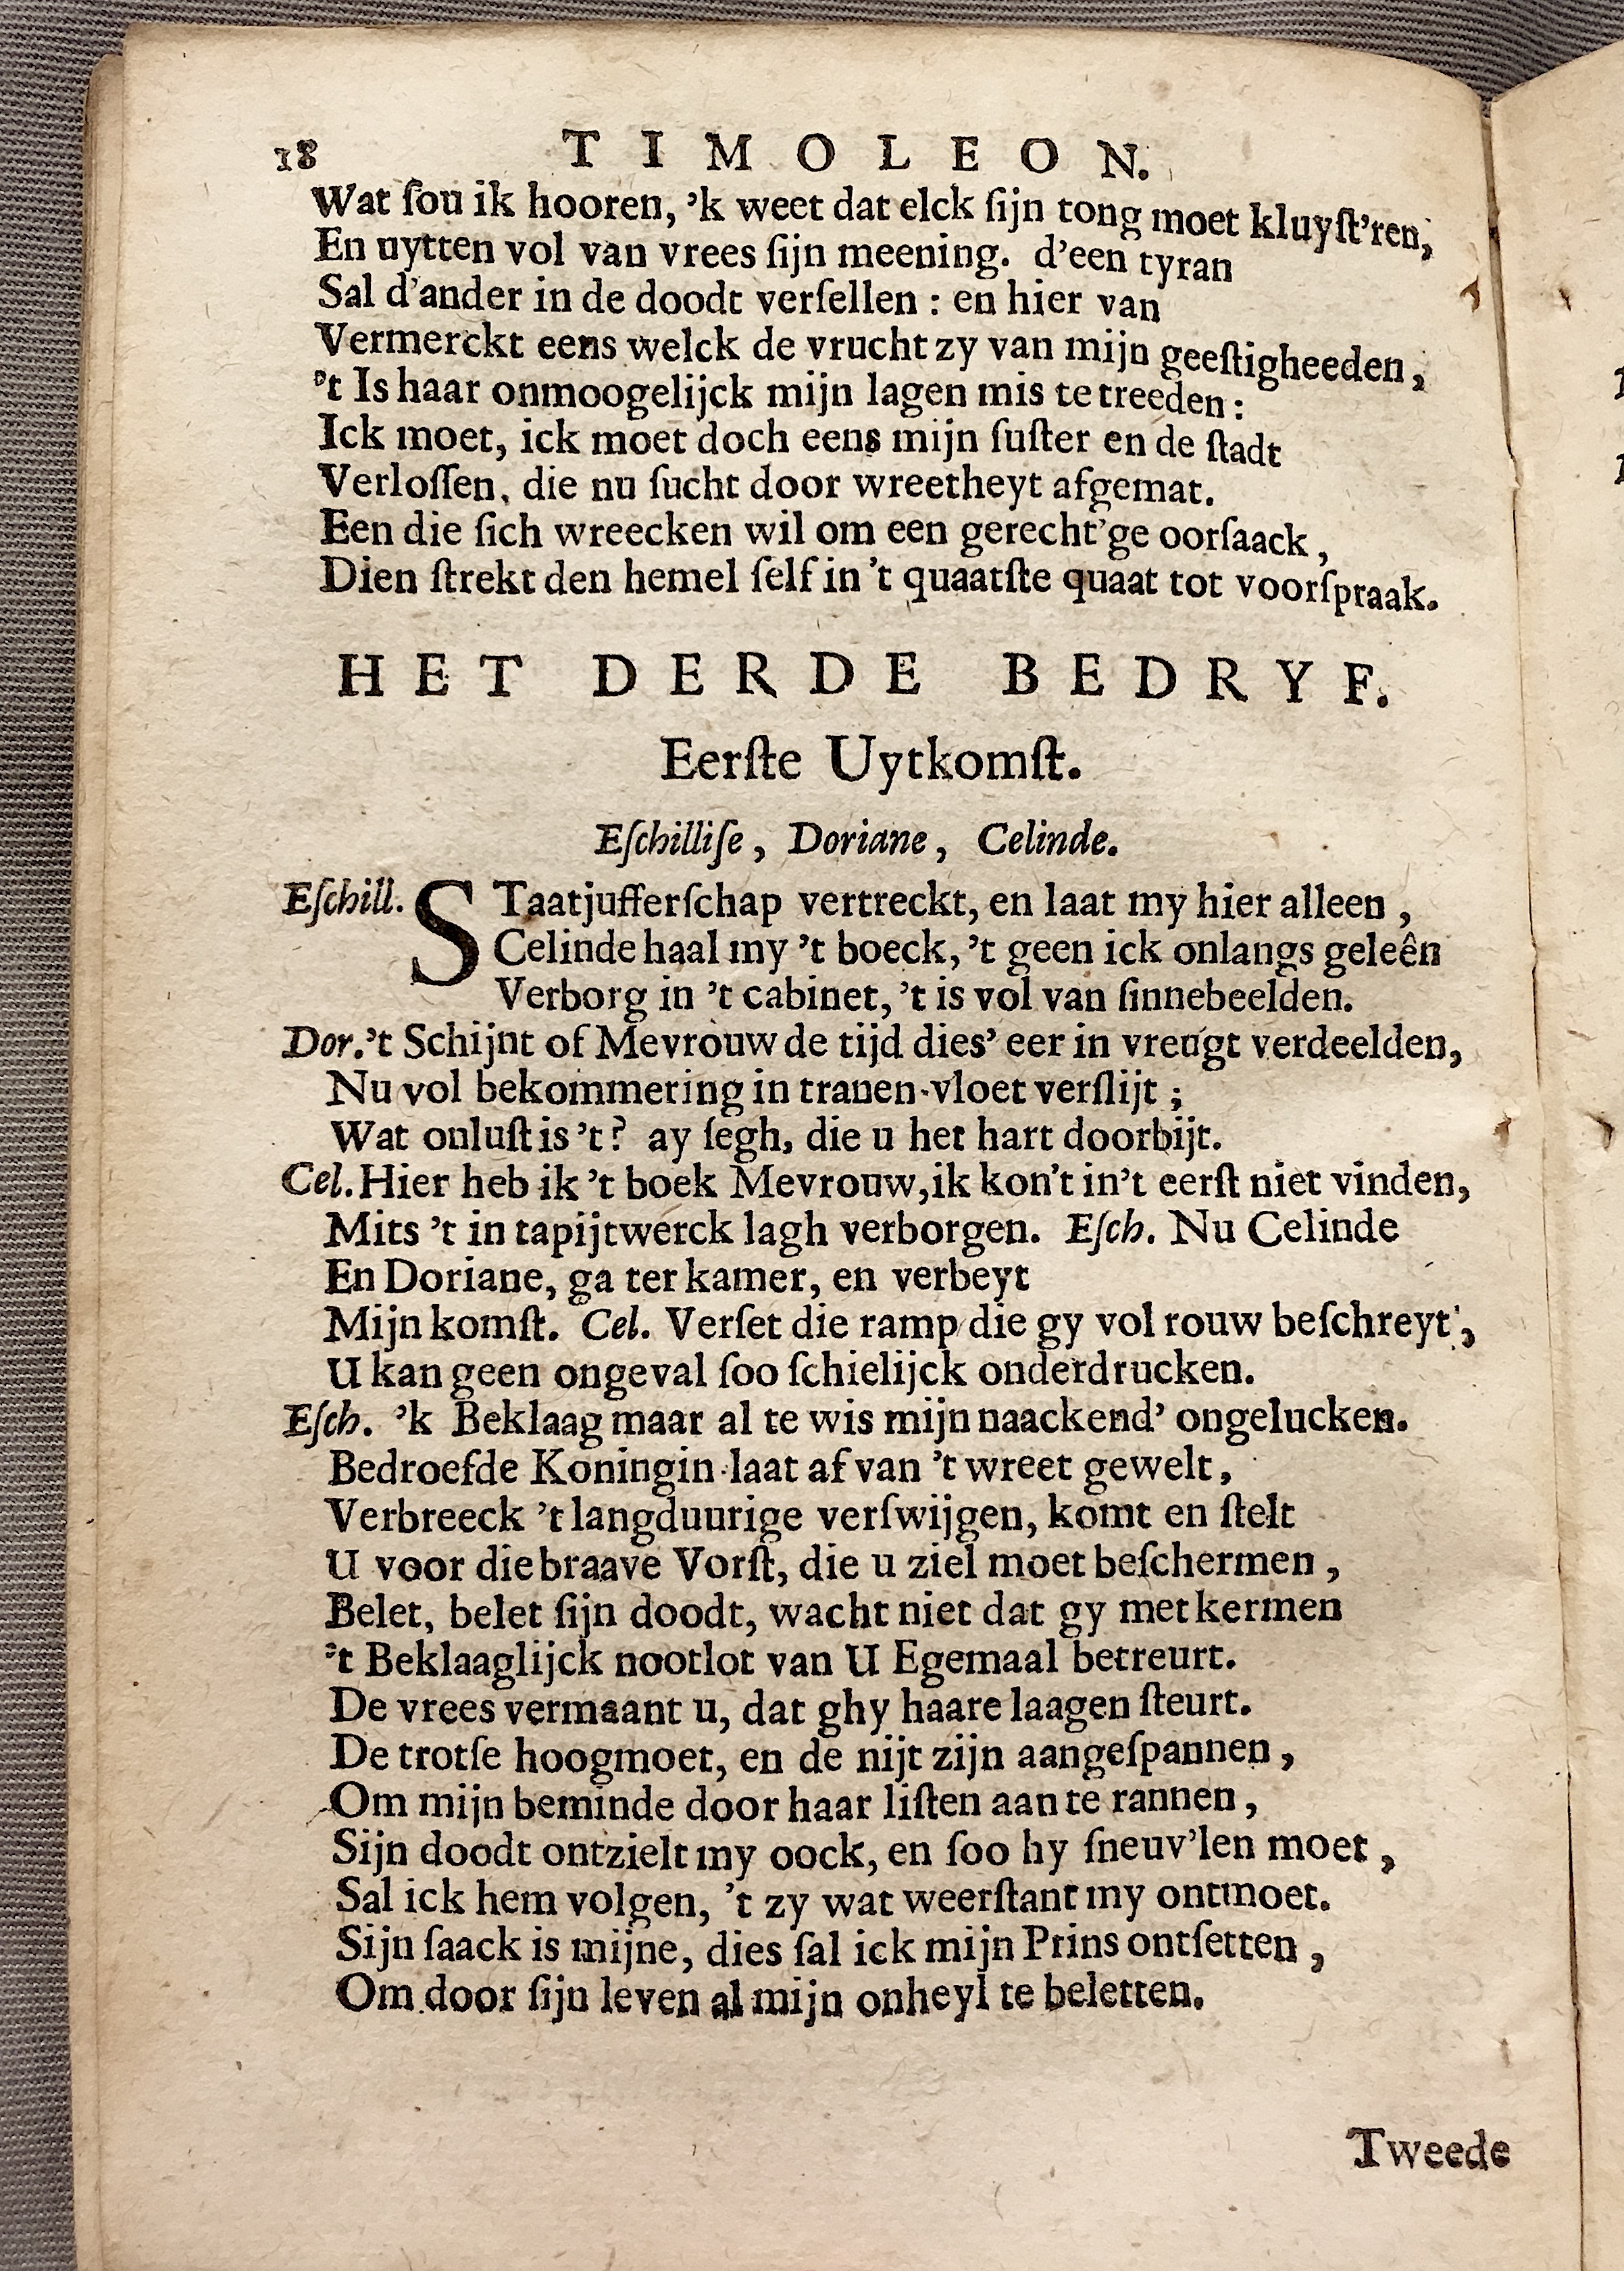 18 TIMOLEON.
Wat ſou ik hooren, ’k weet dat elck ſijn tong moet kluyſt’ren,
En uytten vol van vrees ſijn meening. d’een tyran
Sal d’ander in de doodt verſellen : en hier van
Vermerckt eens welck de vrucht zy van mijn geeſtigheeden,
’t Is haar onmoogelijck mijn lagen mis te treeden :
Ick moet, ick moet doch eens mijn ſuſter en de ſtadt
Verloſſen, die nu ſucht door wreetheyt afgemat.
Een die ſich wreecken wil om een gerecht’ge oorſaack,
Dien ſtrekt den hemel ſelf in ’t quaatſte quaat tot voorſpraak.
HET DERDE BEDRYF.
Eerſte Uytkomſt.
Eſchilliſe, Doriane, Celinde.
Eſchill. STaatjufferſchap vertreckt, en laat my hier alleen,
Celinde haal my ’t boeck, ’t geen ick onlangs geleên
Verborg in ’t cabinet, ’t is vol van ſinnebeelden.
Dor. ’t Schijnt of Mevrouw de tijd dies’ eer in vreugt verdeelden,
Nu vol bekommering in tranen-vloet verſlijt ;
Wat onluſt is ’t ? ay ſegh, die u het hart doorbijt.
Cel. Hier heb ik ’t boek Mevrouw, ik kon’t in’t eerſt niet vinden,
Mits ’t in tapijtwerck lagh verborgen. Eſch. Nu Celinde
En Doriane, ga ter kamer, en verbeyt
Mijn komſt. Cel. Verſet die ramp die gy vol rouw beſchreyt,
U kan geen ongeval ſoo ſchielijck onderdrucken.
Eſch. ’k Beklaag maar al te wis mijn naackend’ ongelucken.
Bedroefde Koningin laat af van ’t wreet gewelt,
Verbreeck ’t langduurige verſwijgen, komt en ſtelt
U voor die braave Vorſt, die u ziel moet beſchermen,
Belet, belet ſijn doodt, wacht niet dat gy met kermen
’t Beklaaglijck nootlot van U Egemaal betreurt.
De vrees vermaant u, dat ghy haare laagen ſteurt.
De trotſe hoogmoet, en de nijt zijn aangeſpannen,
Om mijn beminde door haar liſten aan te rannen,
Sijn doodt ontzielt my oock, en ſoo hy ſneuv’len moet,
Sal ick hem volgen, ’t zy wat weerſtant my ontmoet.
Sijn ſaack is mijne, dies ſal ick mijn Prins ontſetten,
Om door ſijn leven al mijn onheyl te beletten.
Tweede